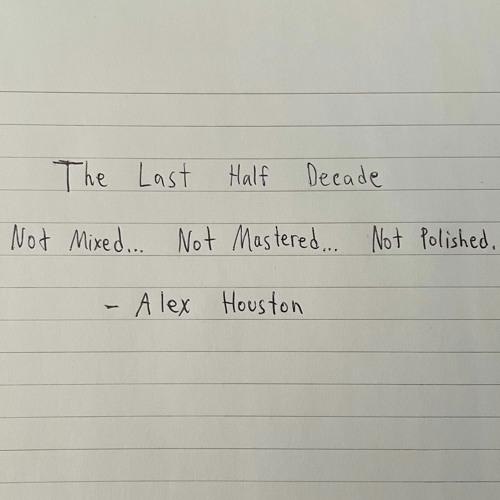 The Last Half Decade
Not Mixed... Not Mastered... Not Polished.
- Alex Houston